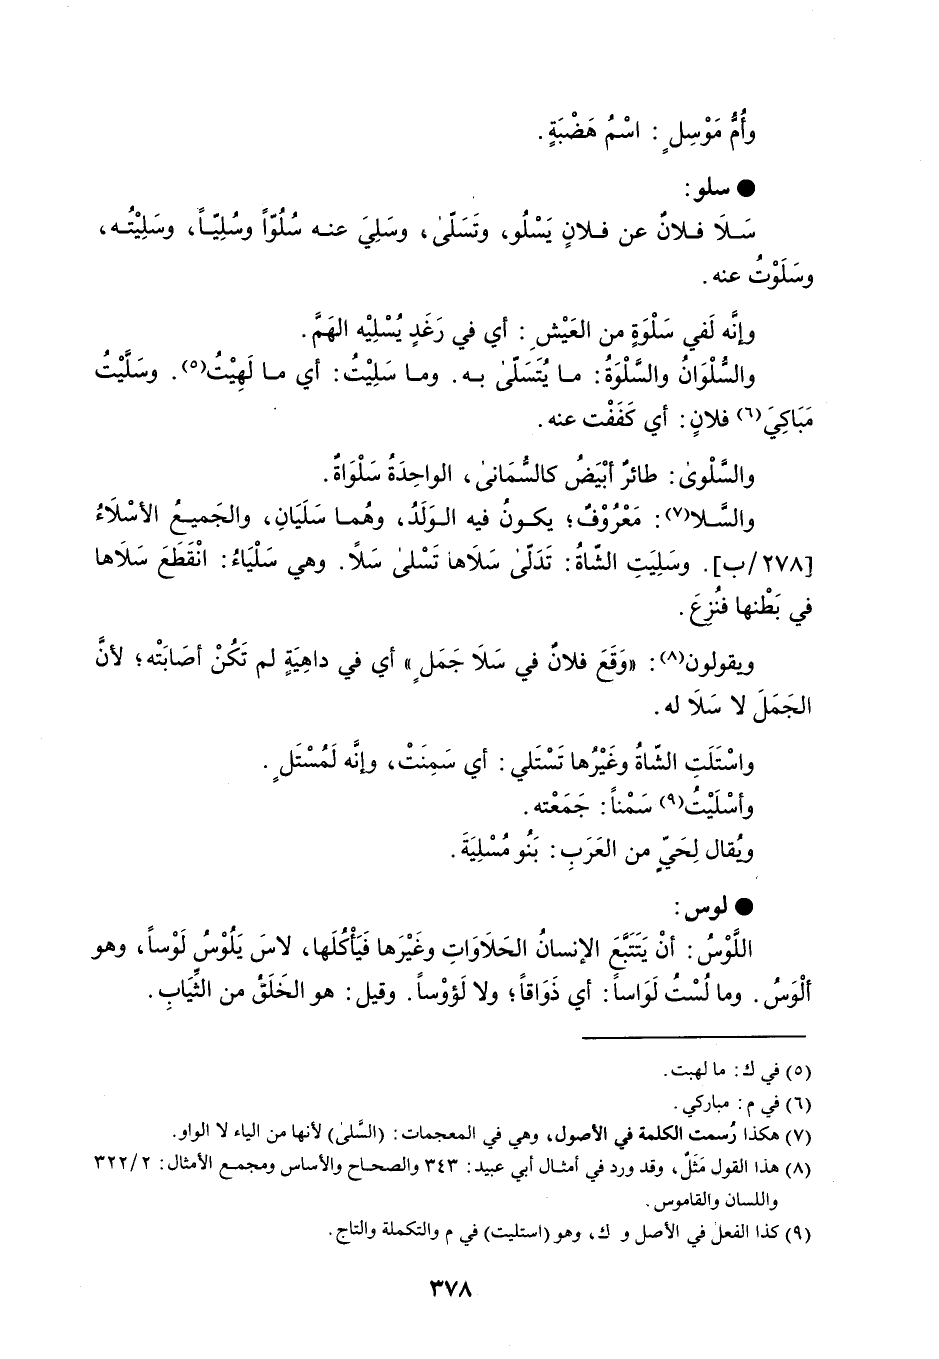 وأُمُّ مَوْسِلٍ : اسْمُ هَضْبَةٍ .
● سلو :
سَـلَا فـلانٌ عن فـلانٍ يَسْلُو، وتَسَلّىٰ، وسَلِيَ عنـه سُلُوّاً وسُلِيّـاً، وسَلِيْتُـه،
وسَلَوْتُ عنه .
وإنَّه لَفي سَلْوَةٍ من العَيْشِ : أي في رَغَدٍ يُسْلِيْه الهَمَّ .
والسُّلْوَانُ والسَّلْوَةُ : مـا يُتَسَلّىٰ بـه . ومـا سَلِيْتُ : أي مـا لَهِيْتُ(٥) . وسَلَّيْتُ
مَبَاكِيَ(٦) فلانٍ : أي كَفَفْت عنه .
والسَّلْوىٰ : طائرٌ أبْيَضُ كالسُّمَانىٰ، الواحِدَةُ سَلْوَاةٌ .
والسَّـلا(٧) : مَعْرُوْفٌ؛ يكـونُ فيه الـوَلَدُ، وهُمـا سَلَيَانِ، والجَميـعُ الأسْلَاءُ
[٢٧٨/ب] . وسَلِيَتِ الشّاةُ : تَدَلّىٰ سَلَاها تَسْلىٰ سَلًا . وهي سَلْيَاءُ : انْقَطَعَ سَلَاها
في بَطْنها فنُزِعَ .
ويقولون(٨) : «وَقَعَ فلانٌ في سَلَا جَمَلٍ» أي في داهِيَةٍ لم تَكُنْ أصَابَتْه؛ لأنَّ
الجَمَلَ لا سَلَا له .
واسْتَلَتِ الشّاةُ وغَيْرُها تَسْتَلي : أي سَمِنَتْ، وإنَّه لَمُسْتَلٍ .
وأسْلَيْتُ(٩) سَمْناً : جَمَعْته .
ويُقال لِحَيٍّ من العَرَبِ : بَنُو مُسْلِيَةَ .
● لوس :
اللَّوْسُ : أنْ يَتَتَبَّعَ الإنسانُ الحَلَاوَاتِ وغَيْرَها فَيَأْكُلَها، لاسَ يَلُوْسُ لَوْساً، وهو
ألْوَسُ . وما لُسْتُ لَوَاساً : أي ذَوَاقاً؛ ولا لَؤوْساً . وقيل : هو الخَلَقُ من الثِّيَابِ .
(٥) في ك : ما لهبت .
(٦) في م : مباركي .
(٧) هكذا رُسمت الكلمة في الأصول، وهي في المعجمات : (السَّلىٰ) لأنها من الياء لا الواو .
(٨) هذا القول مَثَلٌ، وقد ورد في أمثـال أبي عبيد : ٣٤٣ والصحـاح والأساس ومجمـع الأمثال : ٣٢٢/٢
واللسان والقاموس .
(٩) كذا الفعل في الأصل و ك، وهو (استليت) في م والتكملة والتاج .
٣٧٨